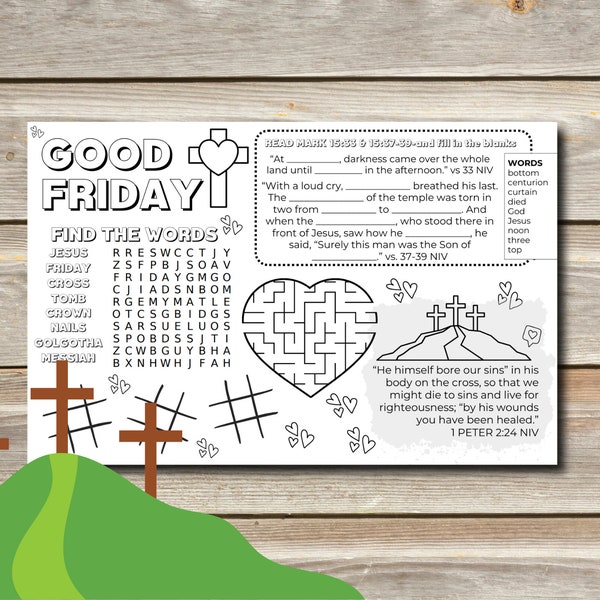 GOOD
FRIDAY
FIND THE WORDS
JESUS
FRIDAY
CROSS
TOMB
CROWN
NAILS
GOLGOTHA
MESSIAH
R R E S W C C T J Y
Z S F P B J S O A V
F R I D A Y G M G O
C J I A D S N B O M
R G E M Y M A T L E
O T C S G B I D G S
S A R S U E L U O S
S P O B D S S J T I
Z C W B G U Y B H A
B X N H W H J F A H
READ MARK 15:33 & 15:37-39-and fill in the blanks
"At ________, darkness came over the whole
land until ________ in the afternoon." vs 33 NIV
"With a loud cry, __________ breathed his last.
The __________ of the temple was torn in
two from ________ to ________. And
when the ____________, who stood there in
front of Jesus, saw how he _________, he
said, "Surely this man was the Son of
__________." vs. 37-39 NIV
WORDS
bottom
centurion
curtain
died
God
Jesus
noon
three
top
"He himself bore our sins" in his
body on the cross, so that we
might die to sins and live for
righteousness; "by his wounds
you have been healed."
1 PETER 2:24 NIV